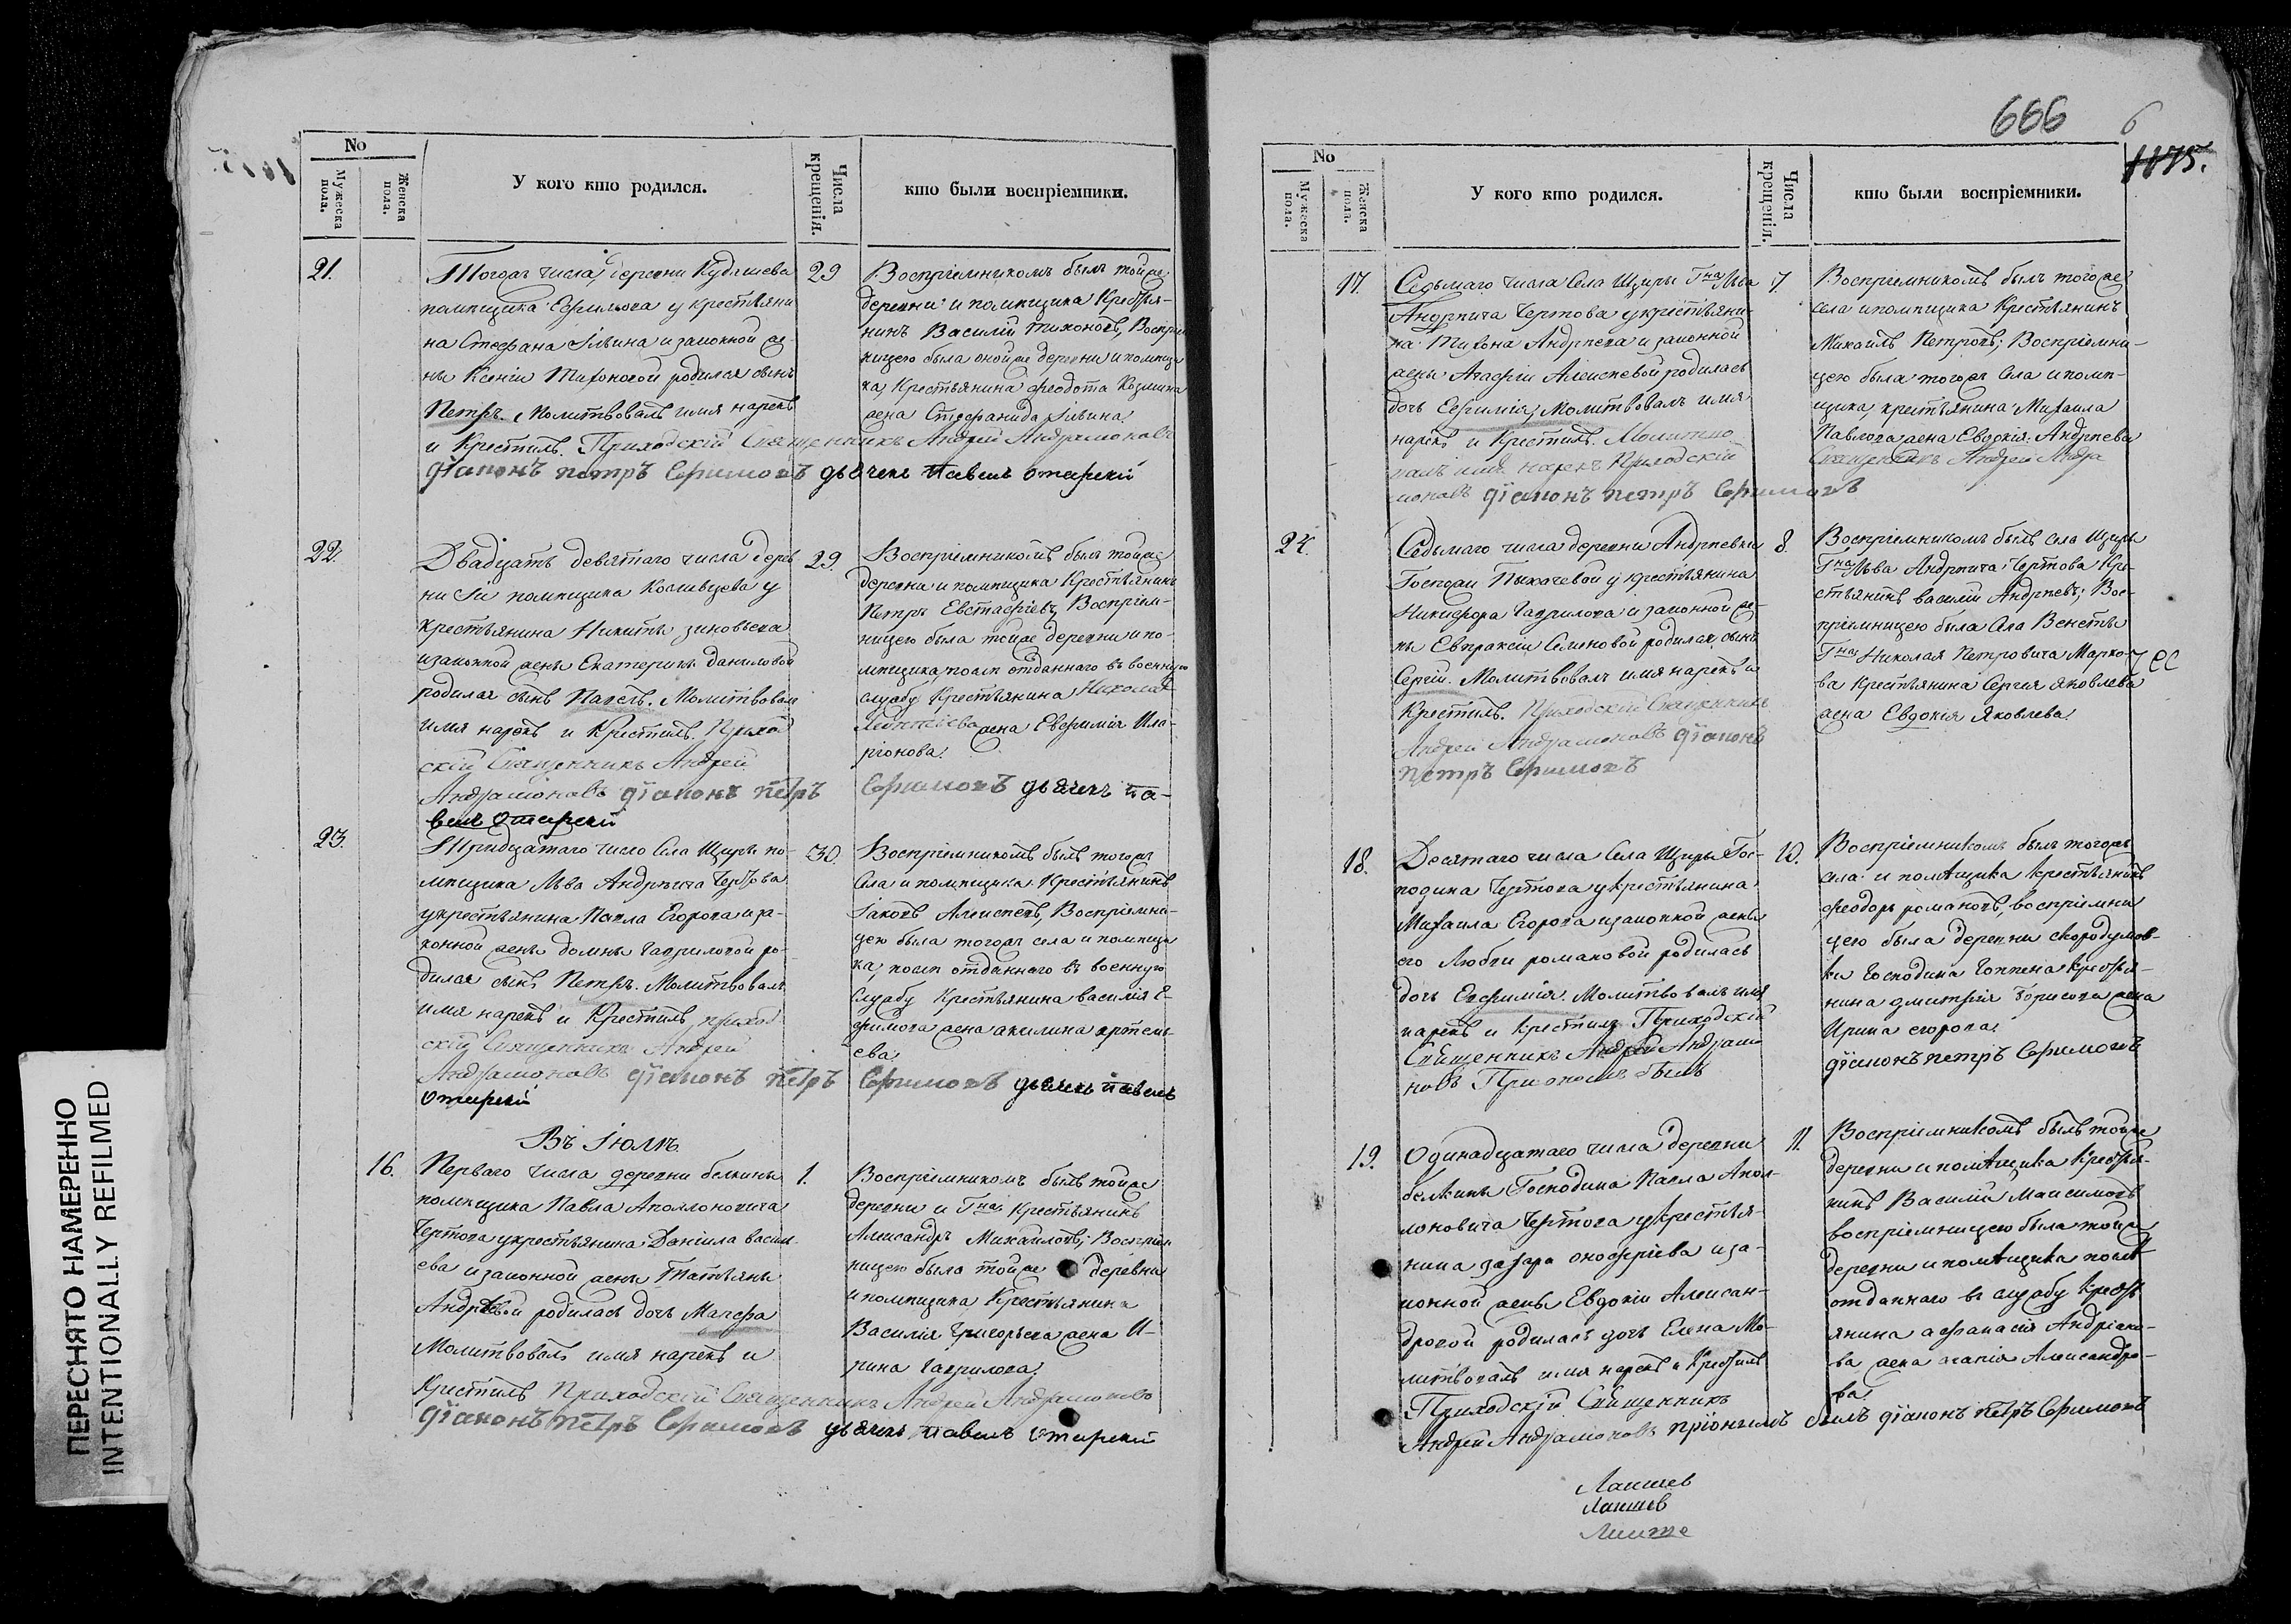 ПЕРЕСНЯТО НАМЕРЕННО
INTENTIONALLY REFILMED
No
Мужеска пола.
Женска пола.
У кого кто родился.
Числа крещенія.
кто были воспріемники.
21.
Тогожъ числа, деревни Кудашева
помѣщика Ефимова у крестьяни
на Стефана Ильина и законной же
ны Ксеніи Тихоновой родился сынъ
Петръ. Молитвовалъ имя нарекъ
и Крестилъ. Приходскій Священникъ Андрей Андрамоновъ
діаконъ петръ Ефимовъ дьячекъ павелъ
29
Воспріемникомъ былъ тойже
деревни и помѣщика Крестья-
нинъ Василій Тихоновъ, Воспріем
ницею была оной же деревни и помѣщи
ка, Крестьянина Феодота Козмина
жена Стефанида Ильина.
22.
Двадцать девятаго числа дерев
ни помѣщика у
крестьянина Никиты Зиновьева
и законной жены Екатерины Даниловой
родился сынъ Павелъ. Молитвовалъ
имя нарекъ и Крестилъ. Приход
скій Священникъ Андрей
Андрамоновъ діаконъ петръ Ефимовъ дьячекъ па-
велъ
29.
Воспріемникомъ былъ тойже
деревни и помѣщика Крестьянинъ
Петръ Евстафіевъ, Воспріем-
ницею была тойже деревни и по-
мѣщика, отданнаго въ военную
службу Крестьянина
жена Евфимія Ила-
ріонова.
23.
Тридцатаго число Села Щиры по-
мѣщика Льва Андрѣича Чертова
у крестьянина Павла Егорова и за-
конной жены Домны Гавриловой ро-
дился сынъ Петръ. Молитвовалъ
имя нарекъ и Крестилъ приход
скій Священникъ Андрей
Андрамоновъ діаконъ петръ Ефимовъ дьячекъ павелъ
30.
Воспріемникомъ былъ тогожъ
Села и помѣщика Крестьянинъ
Іаковъ Алексѣевъ, Воспріемни-
цею была тогожъ села и помѣщи
ка, отданнаго въ военную
Службу Крестьянина василія Е-
фимова жена акилина
ева.
Въ Іюлѣ.
16.
Перваго числа деревни белкины
помѣщика Павла Аполлоновича
Чертова у крестьянина Даніила васил
ева и законной жены Татьяны
Андрѣевой родилась дочь Мавфа
Молитвовалъ имя нарекъ и
Крестилъ Приходскій Священникъ Андрей Андрамоновъ
діаконъ петръ Ефимовъ дьячекъ павелъ
1.
Воспріемникомъ былъ тойже
деревни и Гна Крестьянинъ
Александръ Михайловъ; Воспріем
ницею была тойже деревни
и помѣщика Крестьянина
Василія Григорьева жена И-
рина Гаврилова.
666
6
1875.
No
Мужеска пола.
Женска пола.
У кого кто родился.
Числа крещенія.
кто были воспріемники.
17.
Седьмаго числа Села Щиры Гна Льва
Андрѣича Чертова у крестьяни-
на Тихона Андрѣева и законной
жены Агафіи Алексѣевой родилась
дочь Евфимія, Молитвовалъ имя
нарекъ и Крестилъ. Молитво
валъ имя нарекъ Приходскій
Священникъ Андрей Андра
моновъ діаконъ петръ Ефимовъ
7.
Воспріемникомъ былъ тогоже
села и помѣщика Крестьянинъ
Михаилъ Петровъ; Воспріемни-
цею была тогожъ Села и помѣ-
щика, крестьянина Михаила
Павлова жена Евдокія Андрѣева
24.
Седьмаго числа деревни Андрѣевки
Госпожи Пыхачевой у крестьянина
Никифора Гаврилова и законной же-
ны Евпраксіи Селиновой родился сынъ
Сергій. Молитвовалъ имя нарекъ и
Крестилъ. Приходскій Священникъ
Андрей Андрамоновъ діаконъ
петръ Ефимовъ
8.
Воспріемникомъ былъ села Щиры
Гна Льва Андрѣича Чертова Кре-
стьянинъ василій Андрѣевъ; Вос-
пріемницею была Села Венсты
Гна Николая Петровича Марко-
ва Крестьянина Сергія Яковлева
жена Евдокія Яковлева.
18.
Десятаго числа Села Щиры Гос-
подина Чертова у крестьянина
Михаила Егорова и законной жены
его Любви романовой родилась
дочь Евфимія. Молитвовалъ имя
нарекъ и крестилъ Приходскій
Священникъ Андрей Андрамо
новъ При ономъ былъ
діаконъ петръ Ефимовъ
10.
Воспріемникомъ былъ тогожъ
села и помѣщика крестьянинъ
феодоръ романовъ, воспріемни
цею была деревни скородумов-
ки Господина крестья-
нина дмитрія борисова жена
Ирина егорова.
19.
Одинадцатаго числа деревни
белкины Господина Павла Апол-
лоновича Чертова у крестья-
нина захара онофріева и за-
конной жены Евдокіи Алексан-
дровой родилась дочь Елена Мо-
литвовалъ имя нарекъ и Крестилъ
Приходскій Священникъ
Андрей Андрамоновъ при ономъ былъ діаконъ петръ Ефимовъ
11.
Воспріемникомъ былъ тойже
деревни и помѣщика Крестья-
нинъ Василій Максимовъ
воспріемницею была тойже
деревни и помѣщика
отданнаго въ службу Кресть
янина афанасія Андріано-
ва жена агапія Александро-
ва.